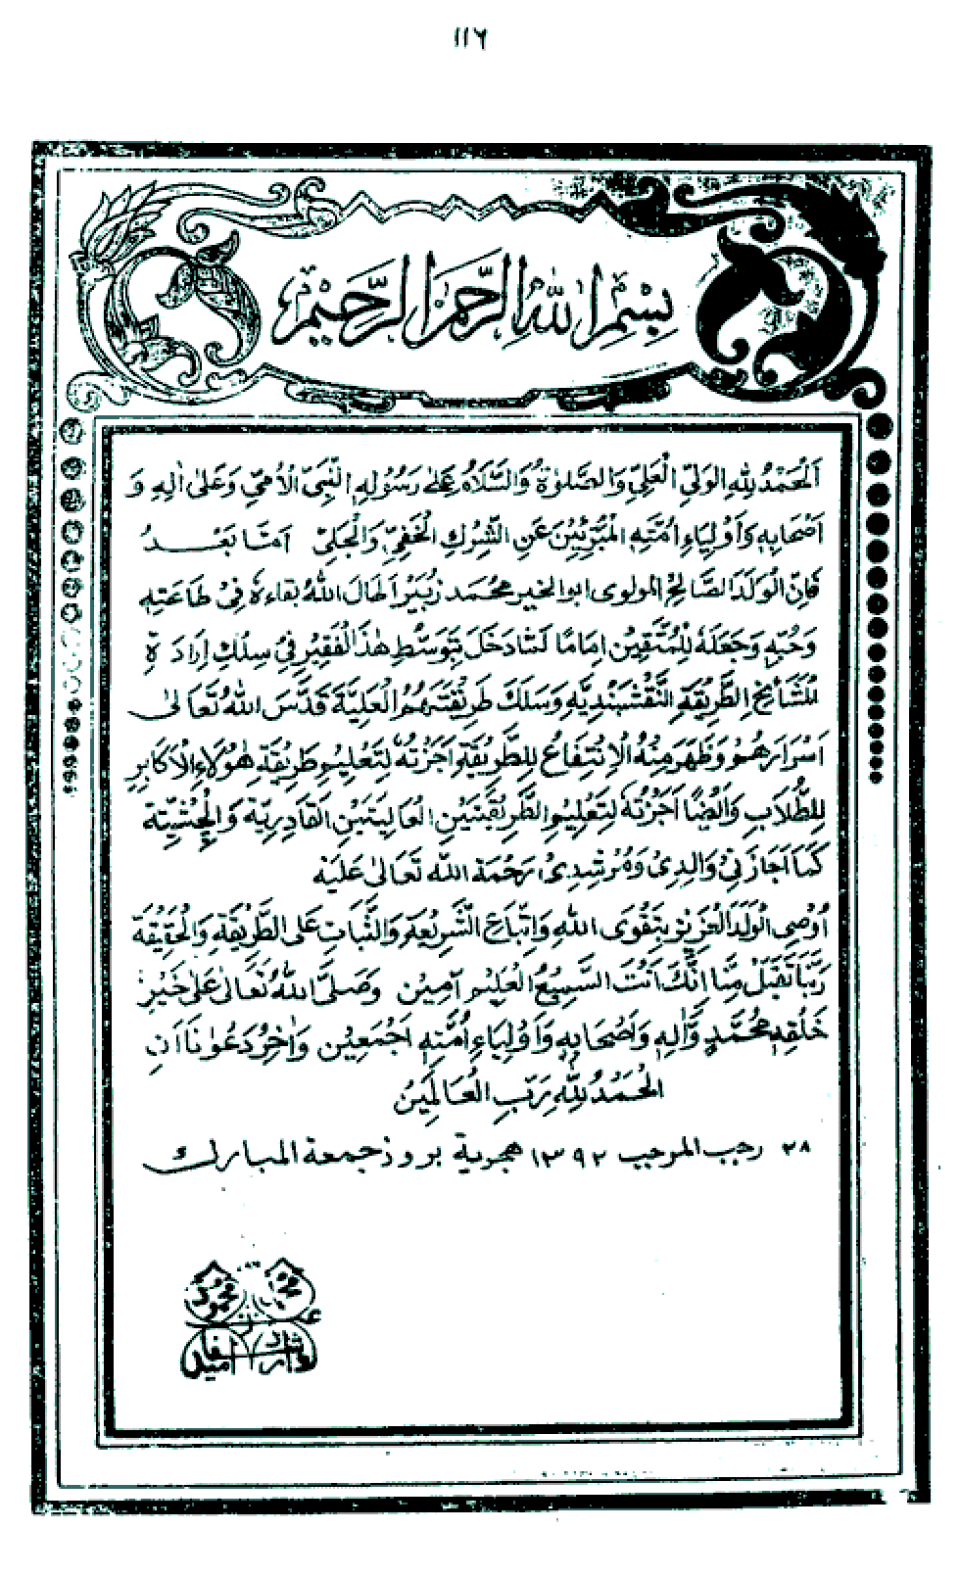 ١١٦
بِسْمِ اللهِ الرَّحْمٰنِ الرَّحِيْمِ
اَلْحَمْدُ لِلّٰهِ الوَلِيِّ الْعَلِيِّ وَالصَّلٰوةُ وَالسَّلَامُ عَلٰى رَسُوْلِهِ النَّبِيِّ الْاُمِّيِّ وَعَلٰى اٰلِهِ وَ
اَصْحَابِهٖ وَاَوْلِيَاءِ اُمَّتِهِ الْمُبَرَّئِيْنَ عَنِ الشِّرْكِ الْخَفِيِّ وَالْجَلِيِّ اَمَّا بَعْدُ
فَاِنَّ الْوَلَدَ الصَّالِحَ المولوى ابو الخير محمد زُبَيْر اَطَالَ اللهُ بَقَاءَهُ فِيْ طَاعَتِهٖ
وَحُبِّهٖ وَجَعَلَهٗ لِلْمُتَّقِيْنَ اِمَامًا لَمَّا دَخَلَ بِتَوَسُّطِ هٰذَا الْفَقِيْرِ فِيْ سِلْكِ اِرَادَةِ
الْمَشَائِخِ الطَّرِيْقَةِ النَّقْشَبَنْدِيَّهِ وَسَلَكَ طَرِيْقَتَهُمُ الْعَلِيَّةَ قَدَّسَ اللهُ تَعَالٰى
اَسْرَارَهُمْ وَظَهَرَ مِنْهُ الْاِنْتِفَاعُ لِلطَّرِيْقَةِ اَجَزْتُهٗ لِتَعْلِيْمِ طَرِيْقَةِ هٰؤُلَاءِ الْاَكَابِرِ
لِلطُّلَّابِ وَاَيْضًا اَجَزْتُهٗ لِتَعْلِيْمِ الطَّرِيْقَتَيْنِ الْعَالِيَتَيْنِ القَادِرِيَّةِ وَالْچِشْتِيَّةِ
كَمَا اَجَازَنِيْ وَالِدِيْ وَمُرْشِدِيْ رَحْمَةُ اللّٰهِ تَعَالٰى عَلَيْهِ
اُوْصِى الْوَلَدَ الْعَزِيْزَ بِتَقْوَى اللهِ وَاِتِّبَاعِ الشَّرِيْعَةِ وَالثَّبَاتِ عَلَى الطَّرِيْقَةِ وَالْحَقِيْقَةِ
رَبَّنَا تَقَبَّلْ مِنَّا اِنَّكَ اَنْتَ السَّمِيْعُ الْعَلِيْمُ اٰمِيْن وَصَلَّى اللهُ تَعَالٰى عَلٰى خَيْرِ
خَلْقِهٖ مُحَمَّدٍ وَّاٰلِهٖ وَاَصْحَابِهٖ وَاَوْلِيَاءِ اُمَّتِهٖ اَجْمَعِيْن وَاٰخِرُ دَعْوٰنَا اَنِ
الْحَمْدُ لِلّٰهِ رَبِّ الْعَالَمِيْنَ
٢٨ رجب المرجب ١٣٩٢ هجرية بروز جمعة المبارك
محمد محمود